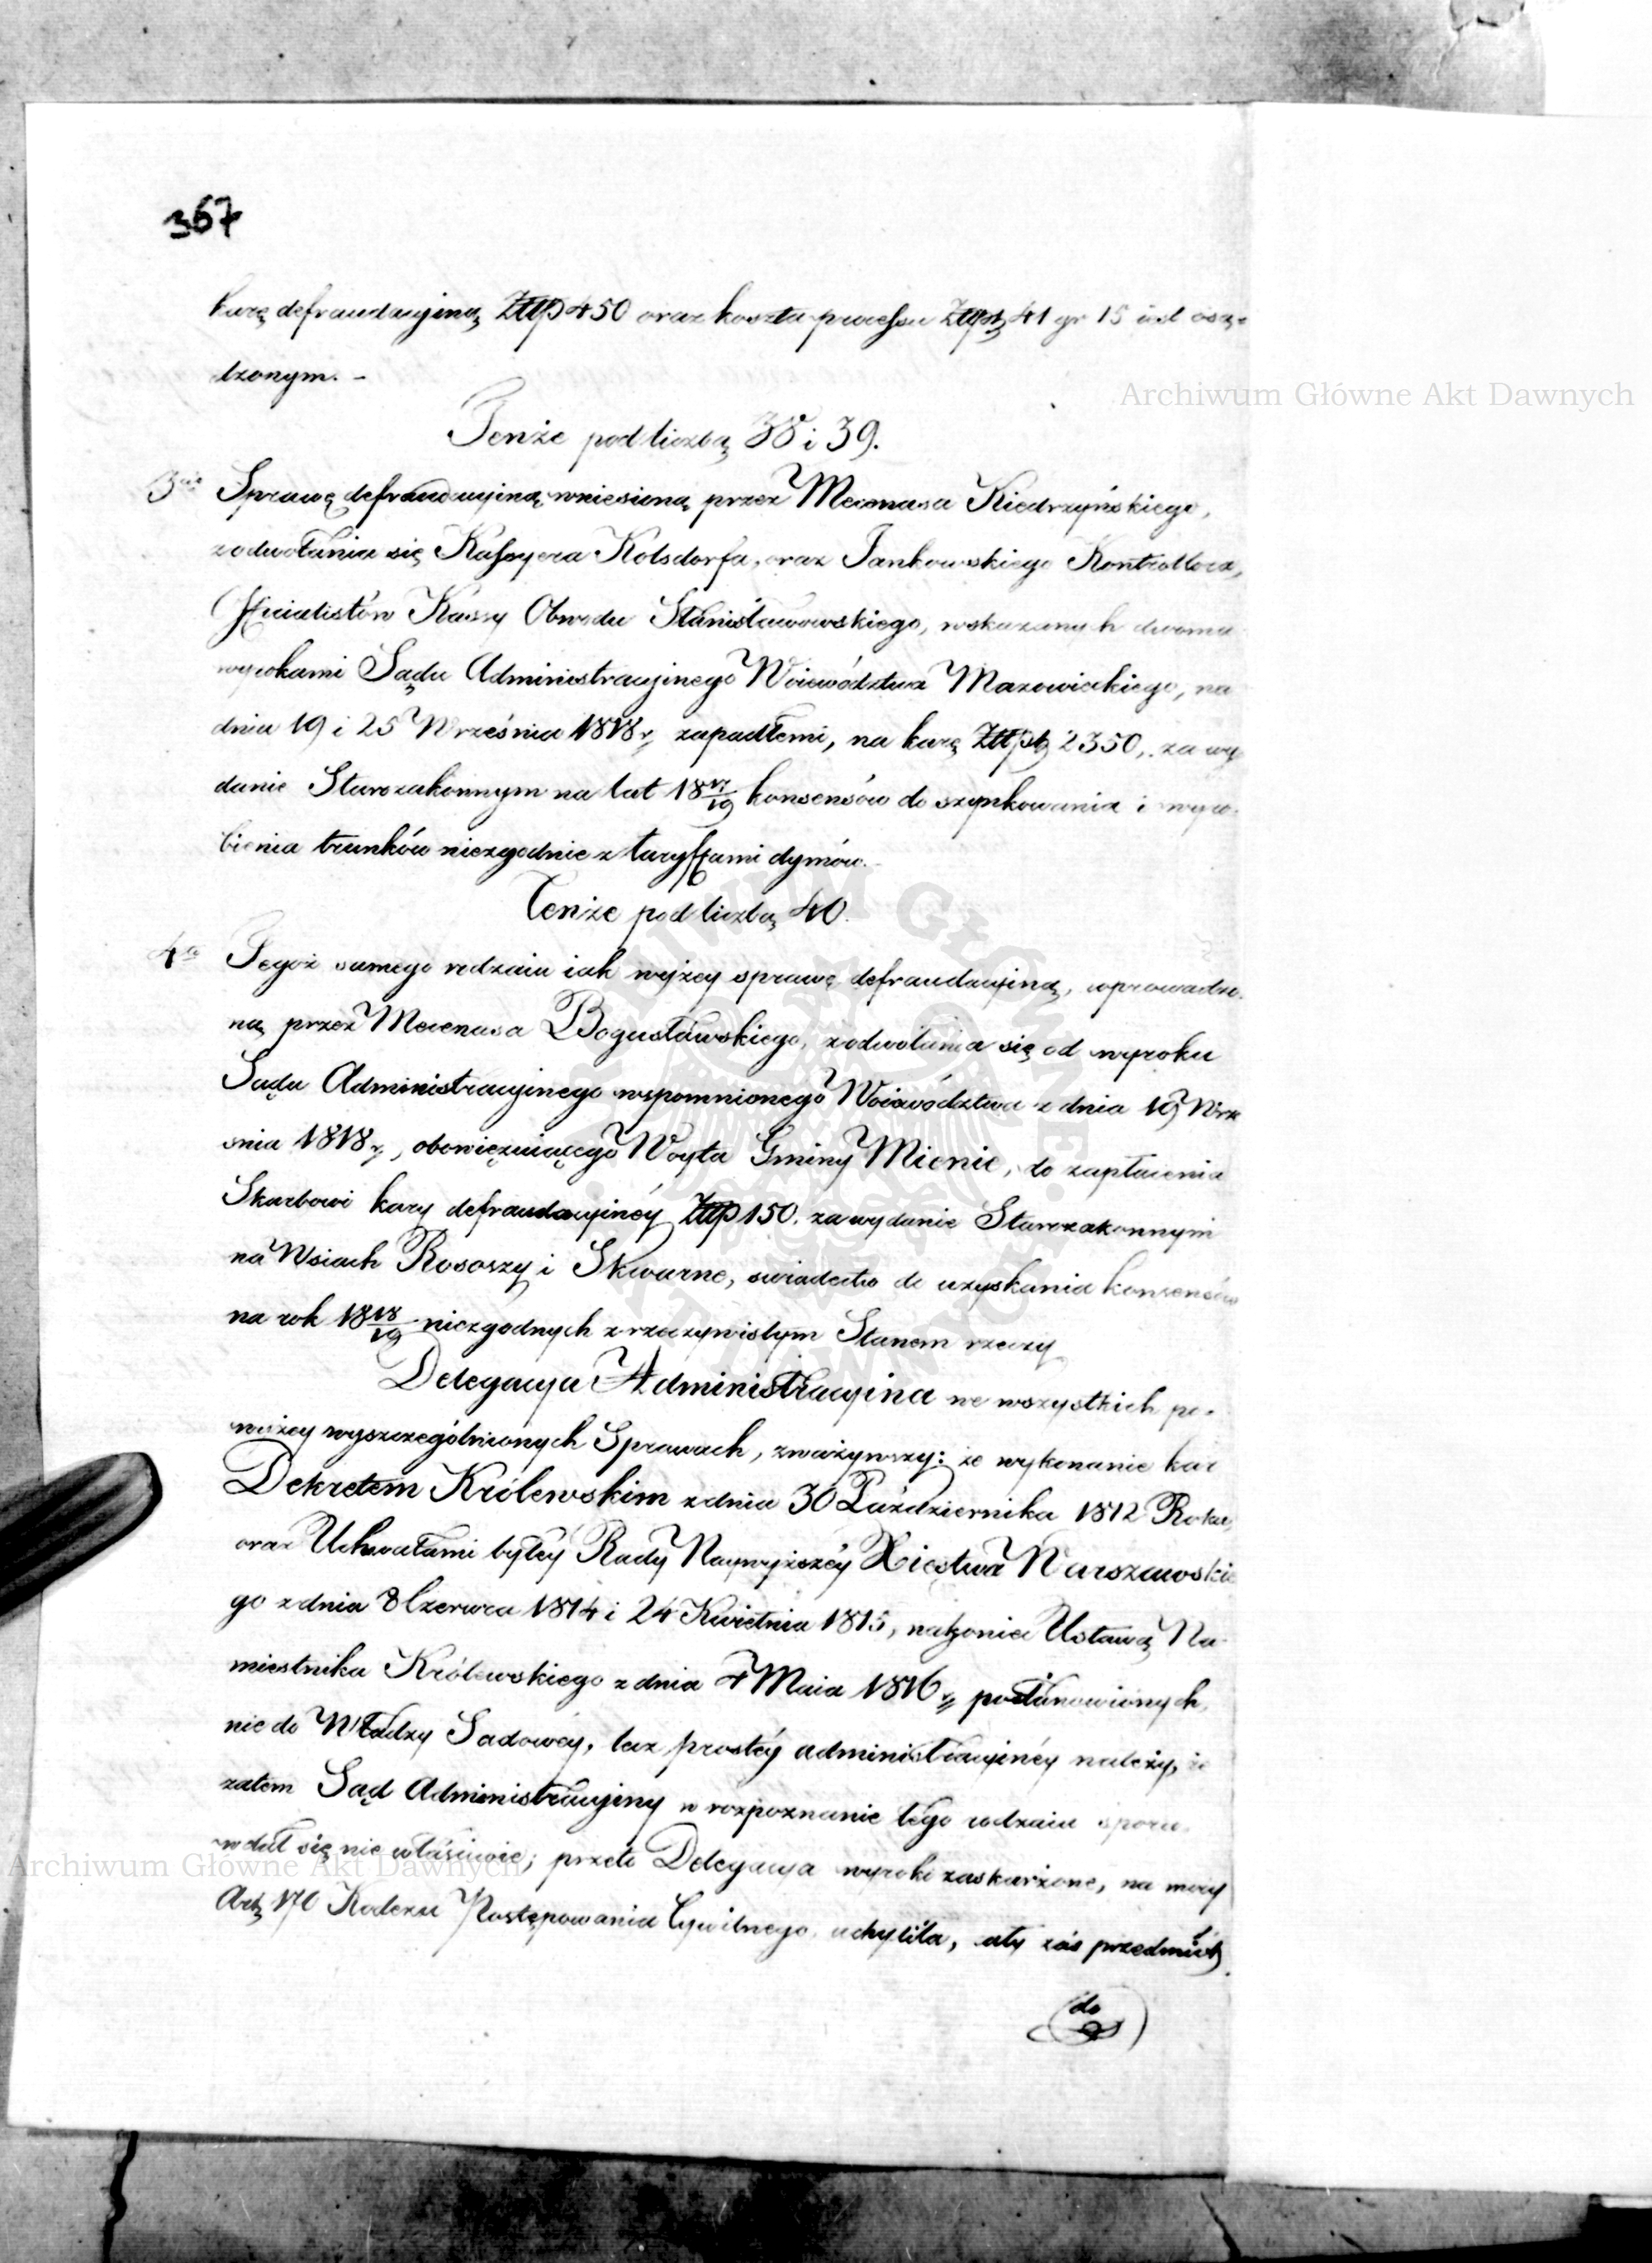 367
karę defraudacyiną Złłp 450 oraz koszta processu Złłpt 41 gr 15 iest osą-
dzonym. -
Tenże pod liczbą 38 i 39.
3cie Sprawę defraudacyiną wniesioną przez Mecenasa Kiedrzyńskiego,
z odwołania się Kassyera Kolsdorfa, oraz Jankowskiego Kontrollora,
Officialistów Kassy Obwodu Stanisławowskiego, wskazanych dwoma
wyrokami Sądu Administracyinego Woiewództwa Mazowieckiego, na
dniu 19 i 25 Września 1818 r. zapadłemi, na karę Złłpt 2350, za wy
danie Starozakonnym na lat 18 17/19 konsensów do szynkowania i wyro-
bienia trunków niezgodnie z taryffami dymów.
Tenże pod liczbą 40.
4te Tegoż samego rodzaiu iak wyżey sprawę defraudacyiną, wprowadzo-
ną przez Mecenasa Bogusławskiego, z odwołania się od wyroku
Sądu Administracyinego wspomnionego Woiewództwa z dnia 19 Wrze
śnia 1818 r, obowięzuiącego Woyta Gminy Mienie, do zapłacenia
Skarbowi kary defraudacyinéy Złłp 150. za wydanie Starozakonnym
na Wsiach Rososzy i Skwarne, świadectw do uzyskania konsensów
na rok 18 18/19 niezgodnych z rzeczywistym Stanem rzeczy
Delegacya Administracyina we wszystkich po-
wyżey wyszczególnionych Sprawach, zważywszy: że wykonanie kar
Dekretem Królewskim z dnia 30 Października 1812 Roku,
oraz Uchwałami byłéy Rady Naywyższéy Xięstwa Warszawskie
go z dnia 8 Czerwca 1814 i 24 Kwietnia 1815, nakoniec Ustawą Na-
miestnika Królewskiego z dnia 4 Maia 1816 r. postanowionych,
nie do Władzy Sądowéy, lecz prostéy administracyinéy należy, że
zatem Sąd Administracyiny w rozpoznanie tego rodzaiu sporu,
wdał się nie właściwie; przeto Delegacya wyroki zaskarżone, na mocy
Artᵘ 170 Kodexu Postępowania Cywilnego, uchyliła, cały zaś przedmiot
do
Archiwum Główne Akt Dawnych